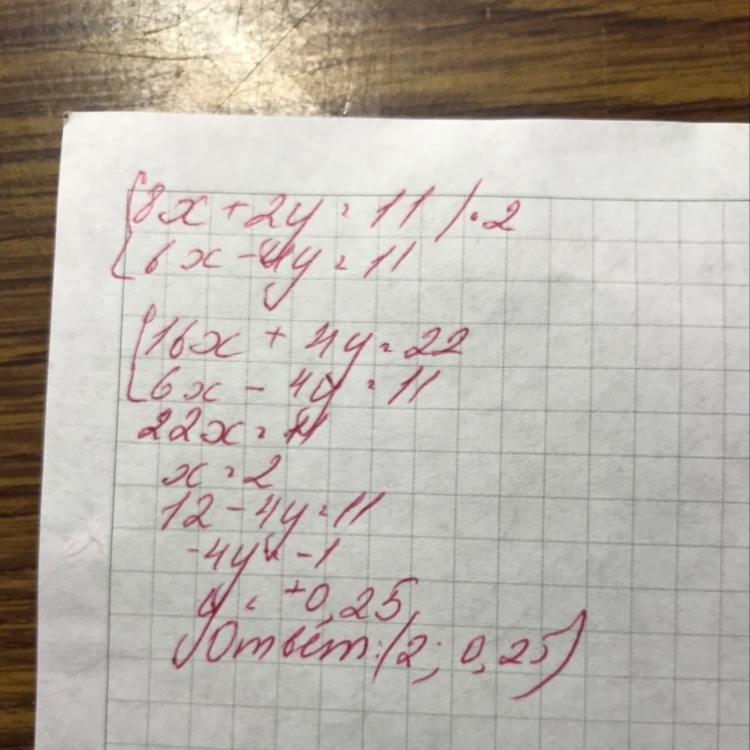 {8x + 2y = 11 | · 2
{6x - 4y = 11
{16x + 4y = 22
{6x - 4y = 11
22x = 11
x = 2
12 - 4y = 11
-4y = -1
y = +0,25
Ответ: (2; 0,25)